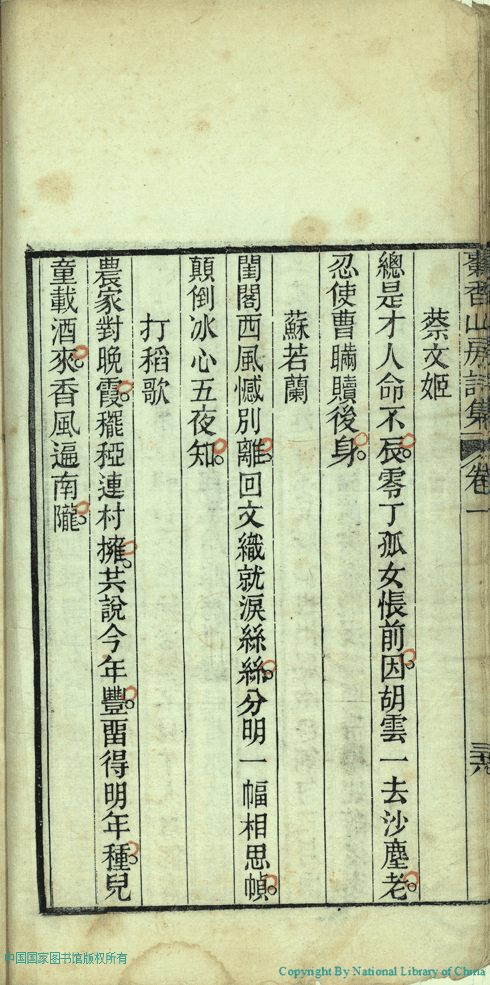 香山房詩集 卷一
蔡文姬
總是才人命不辰。零丁孤女悵前因。胡雲一去沙塵老。
忍使曹瞞贖後身。
蘇若蘭
閨閣西風憾別離。回文織就淚絲絲。分明一幅相思幀。
顛倒冰心五夜知。
打稻歌
農家對晚霞。穲稏連村擁。共說今年豐。畱得明年種。兒
童載酒來。香風遍南隴。
中国国家图书馆版权所有
Copyright By National Library of China